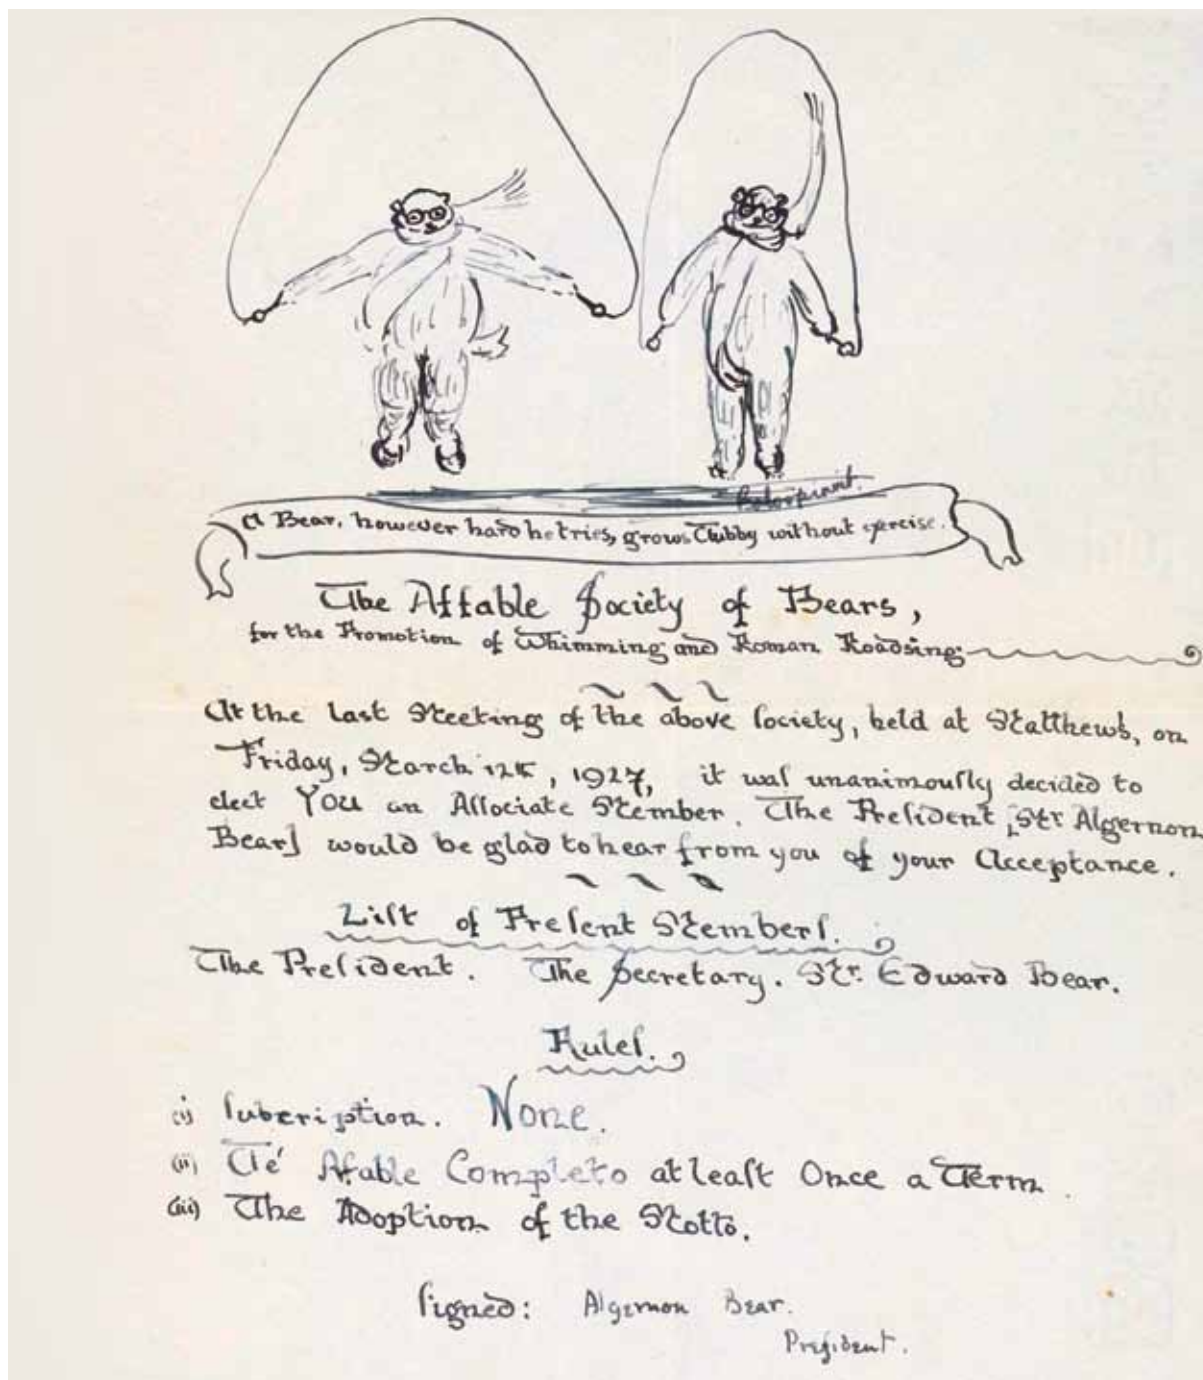 A Bear, however hard he tries, grows Tubby without exercise.
The Affable Society of Bears,
for the Promotion of Whimming and Roman Roadsing
At the last Meeting of the above ſociety, held at Matthews, on
Friday, March 12th, 1927, it waſ unanimouſly decided to
elect YOU an Aſſociate Member. The Preſident [Mr Algernon
Bear] would be glad to hear from you of your Acceptance.
Liſt of Preſent Memberſ.
The Preſident. The Secretary. Mr. Edward Bear.
Ruleſ.
(i) ſubcription. None.
(ii) Té Afable Completo at leaſt Once a Term.
(iii) The Adoption of the Motto.
ſigned: Algernon Bear.
Preſident.